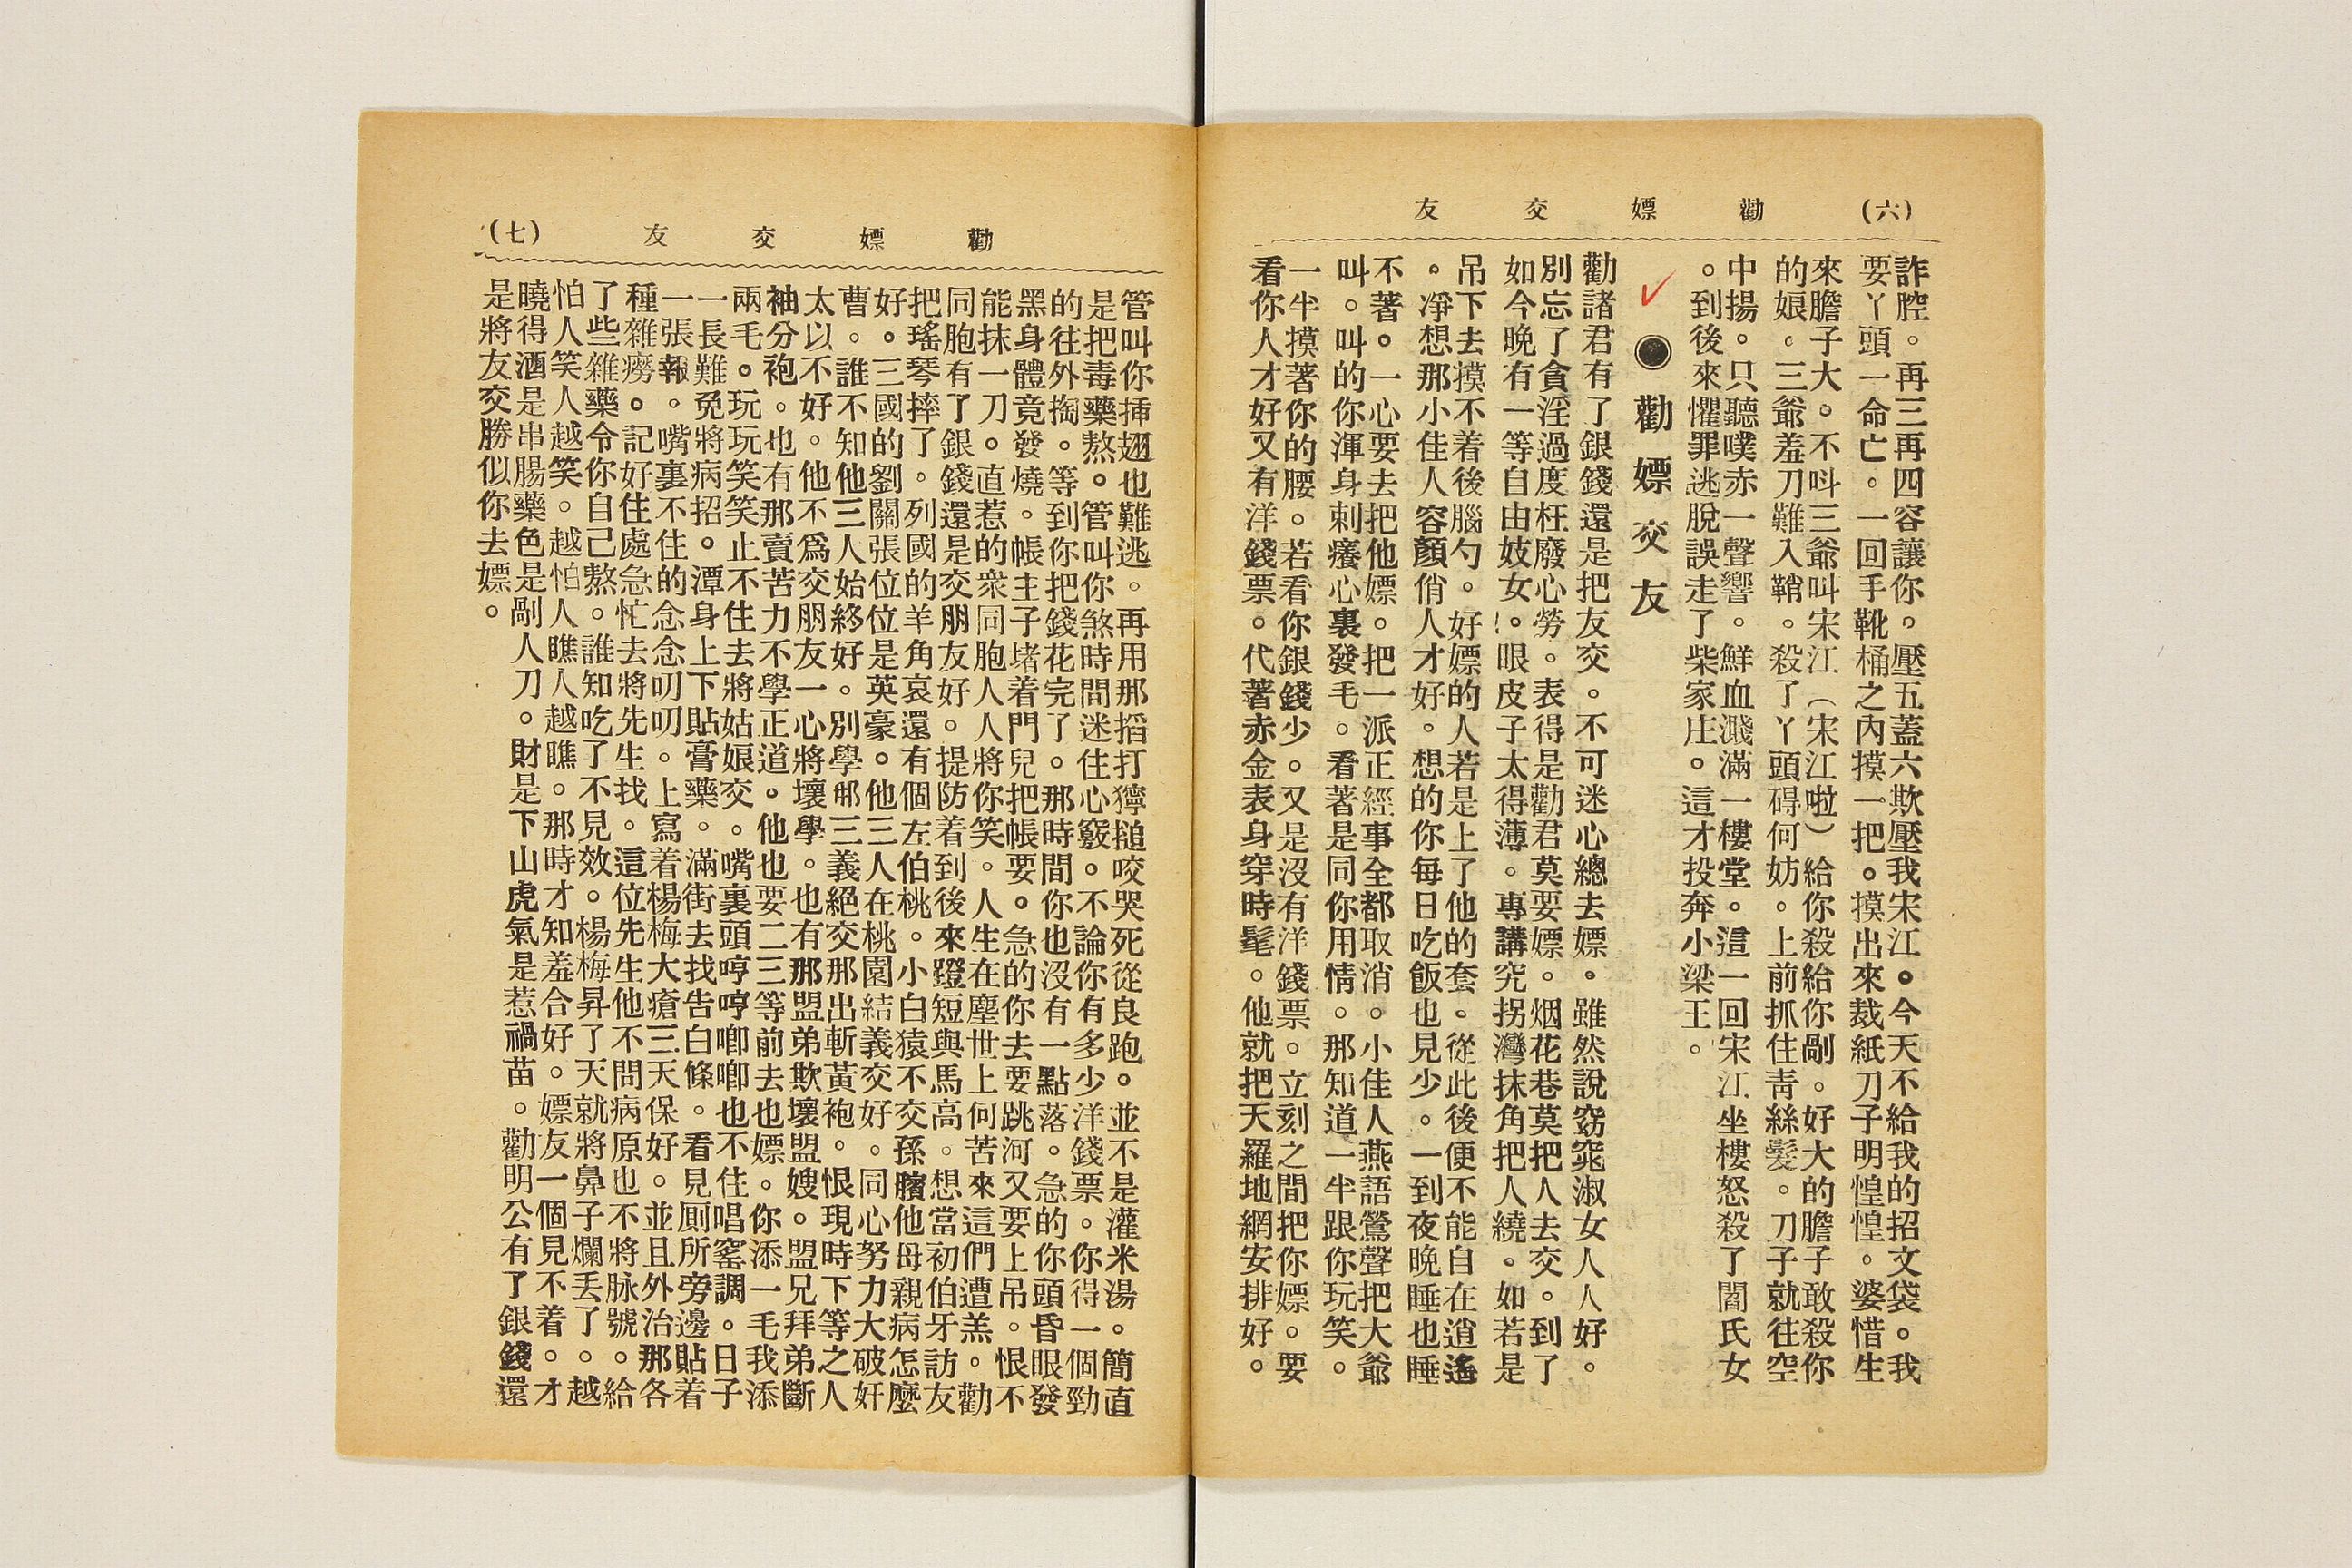 (六) 勸嫖交友
詐腔。再三再四容讓你。壓五蓋六欺壓我宋江。今天不給我的招文袋。我
要丫頭一命亡。一回手靴桶之內摸一把。摸出來裁紙刀子明惶惶。婆惜生
來膽子大。不呌三爺叫宋江（宋江啦）給你殺給你剮。好大的膽子敢殺你
的娘。三爺羞刀難入鞘。殺了丫頭碍何妨。上前抓住青絲髮。刀子就往空
中揚。只聽噗赤一聲響。鮮血濺滿一樓堂。這一回宋江坐樓怒殺了閻氏女
。到後來懼罪逃脫誤走了柴家庄。這才投奔小梁王。
●勸嫖交友
勸諸君有了銀錢還是把友交。不可迷心總去嫖。雖然說窈窕淑女人人好。
別忘了貪淫過度枉廢心勞。表得是勸君莫要嫖。烟花巷莫把人去交。到了
如今晚有一等自由妓女。眼皮子太得薄。專講究拐灣抹角把人繞。如若是
吊下去摸不着後腦勺。好嫖的人若是上了他的套。從此後便不能自在逍遙
。凈想那小佳人容顏俏人才好。想的你每日吃飯也見少。一到夜晚睡也睡
不著。一心要去把他嫖。把一派正經事全都取消。小佳人燕語鶯聲把大爺
叫。叫的你渾身刺癢心裏發毛。看著是同你用情。那知道一半跟你玩笑。
一半摸著你的腰。若看你銀錢少。又是沒有洋錢票。立刻之間把你嫖。要
看你人才好又有洋錢票。代著赤金表身穿時髦。他就把天羅地網安排好。
(七) 勸嫖交友
管叫你挿翅也難逃。再用那搯打獰搥咬哭死從良跑。並不是灌米湯。簡直
是把毒藥熬。管叫你煞時間迷住心竅。不論你有多少洋錢票。你得一個勁
的往外掏。等到你把錢花完了。那時間你也沒有一點落。急的你頭昏眼發
黑身體竟發燒。帳主子堵着門兒把帳要。急的你去要跳河又要上吊。恨不
能抹一刀。直惹的衆同胞人人將你笑。人生在塵世上何苦來這們遭羔。勸
同胞有了銀錢還是交朋友好。提防着到後來蹬短與馬高。想當初伯牙訪友
把瑤琴摔了。列國的羊角哀還有個左伯桃。小白猿不交孫臏他母親病怎麼
好。三國的劉關張位位是英豪。他三人在桃園結義交好。同心努力大破奸
曹。誰不知他三人始終好。別學那三義絕交那出斬黃袍。恨現時下等之人
太以不好。他不爲交朋友一心將壞學。也有那盟弟欺壞盟嫂。盟兄拜弟斷
袖分袍。也有那賣苦力不學正道。他也要二三等前去也嫖。你添一毛我添
兩毛。玩玩笑笑止不住去將姑娘交。嘴裏頭哼哼唧唧也不住唱窰調。日子
一長難免將病招。潭身上下貼膏藥。滿街去找告白條。看見厠所旁邊貼着
一張報。嘴裏不住的念念叨叨。上寫着楊梅大瘡三天保好。並且外治那各
種雜癆。記好住處急忙去將先生找。這位先生他不問病原也不將脉號。給
了些雜藥令你自己熬。誰知吃了不見效。楊梅昇了天就將鼻子爛丟了。越
怕人笑人越笑。越怕人瞧人越瞧。那時才知羞合好。嫖友一個見不着。才
曉得酒是串腸藥色是剮人刀。財是下山虎氣是惹禍苗。勸明公有了銀錢還
是將友交勝似你去嫖。